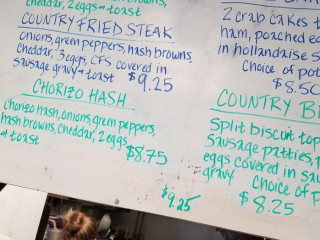 cheddar, 2 eggs + toast
COUNTRY FRIED STEAK
onions, green peppers, hash browns,
cheddar, 3 eggs, CFS covered in
sausage gravy + toast $9.25
CHORIZO HASH
chorizo hash, onions, green peppers,
hash browns, cheddar, 2 eggs
+ toast
$8.75
$9.25
2 crab cakes
ham, poached eg
in hollandaise s
Choice of pot
$8.50
COUNTRY B
Split biscuit top
Sausage patties,
eggs covered in sau
gravy Choice of P
$8.25